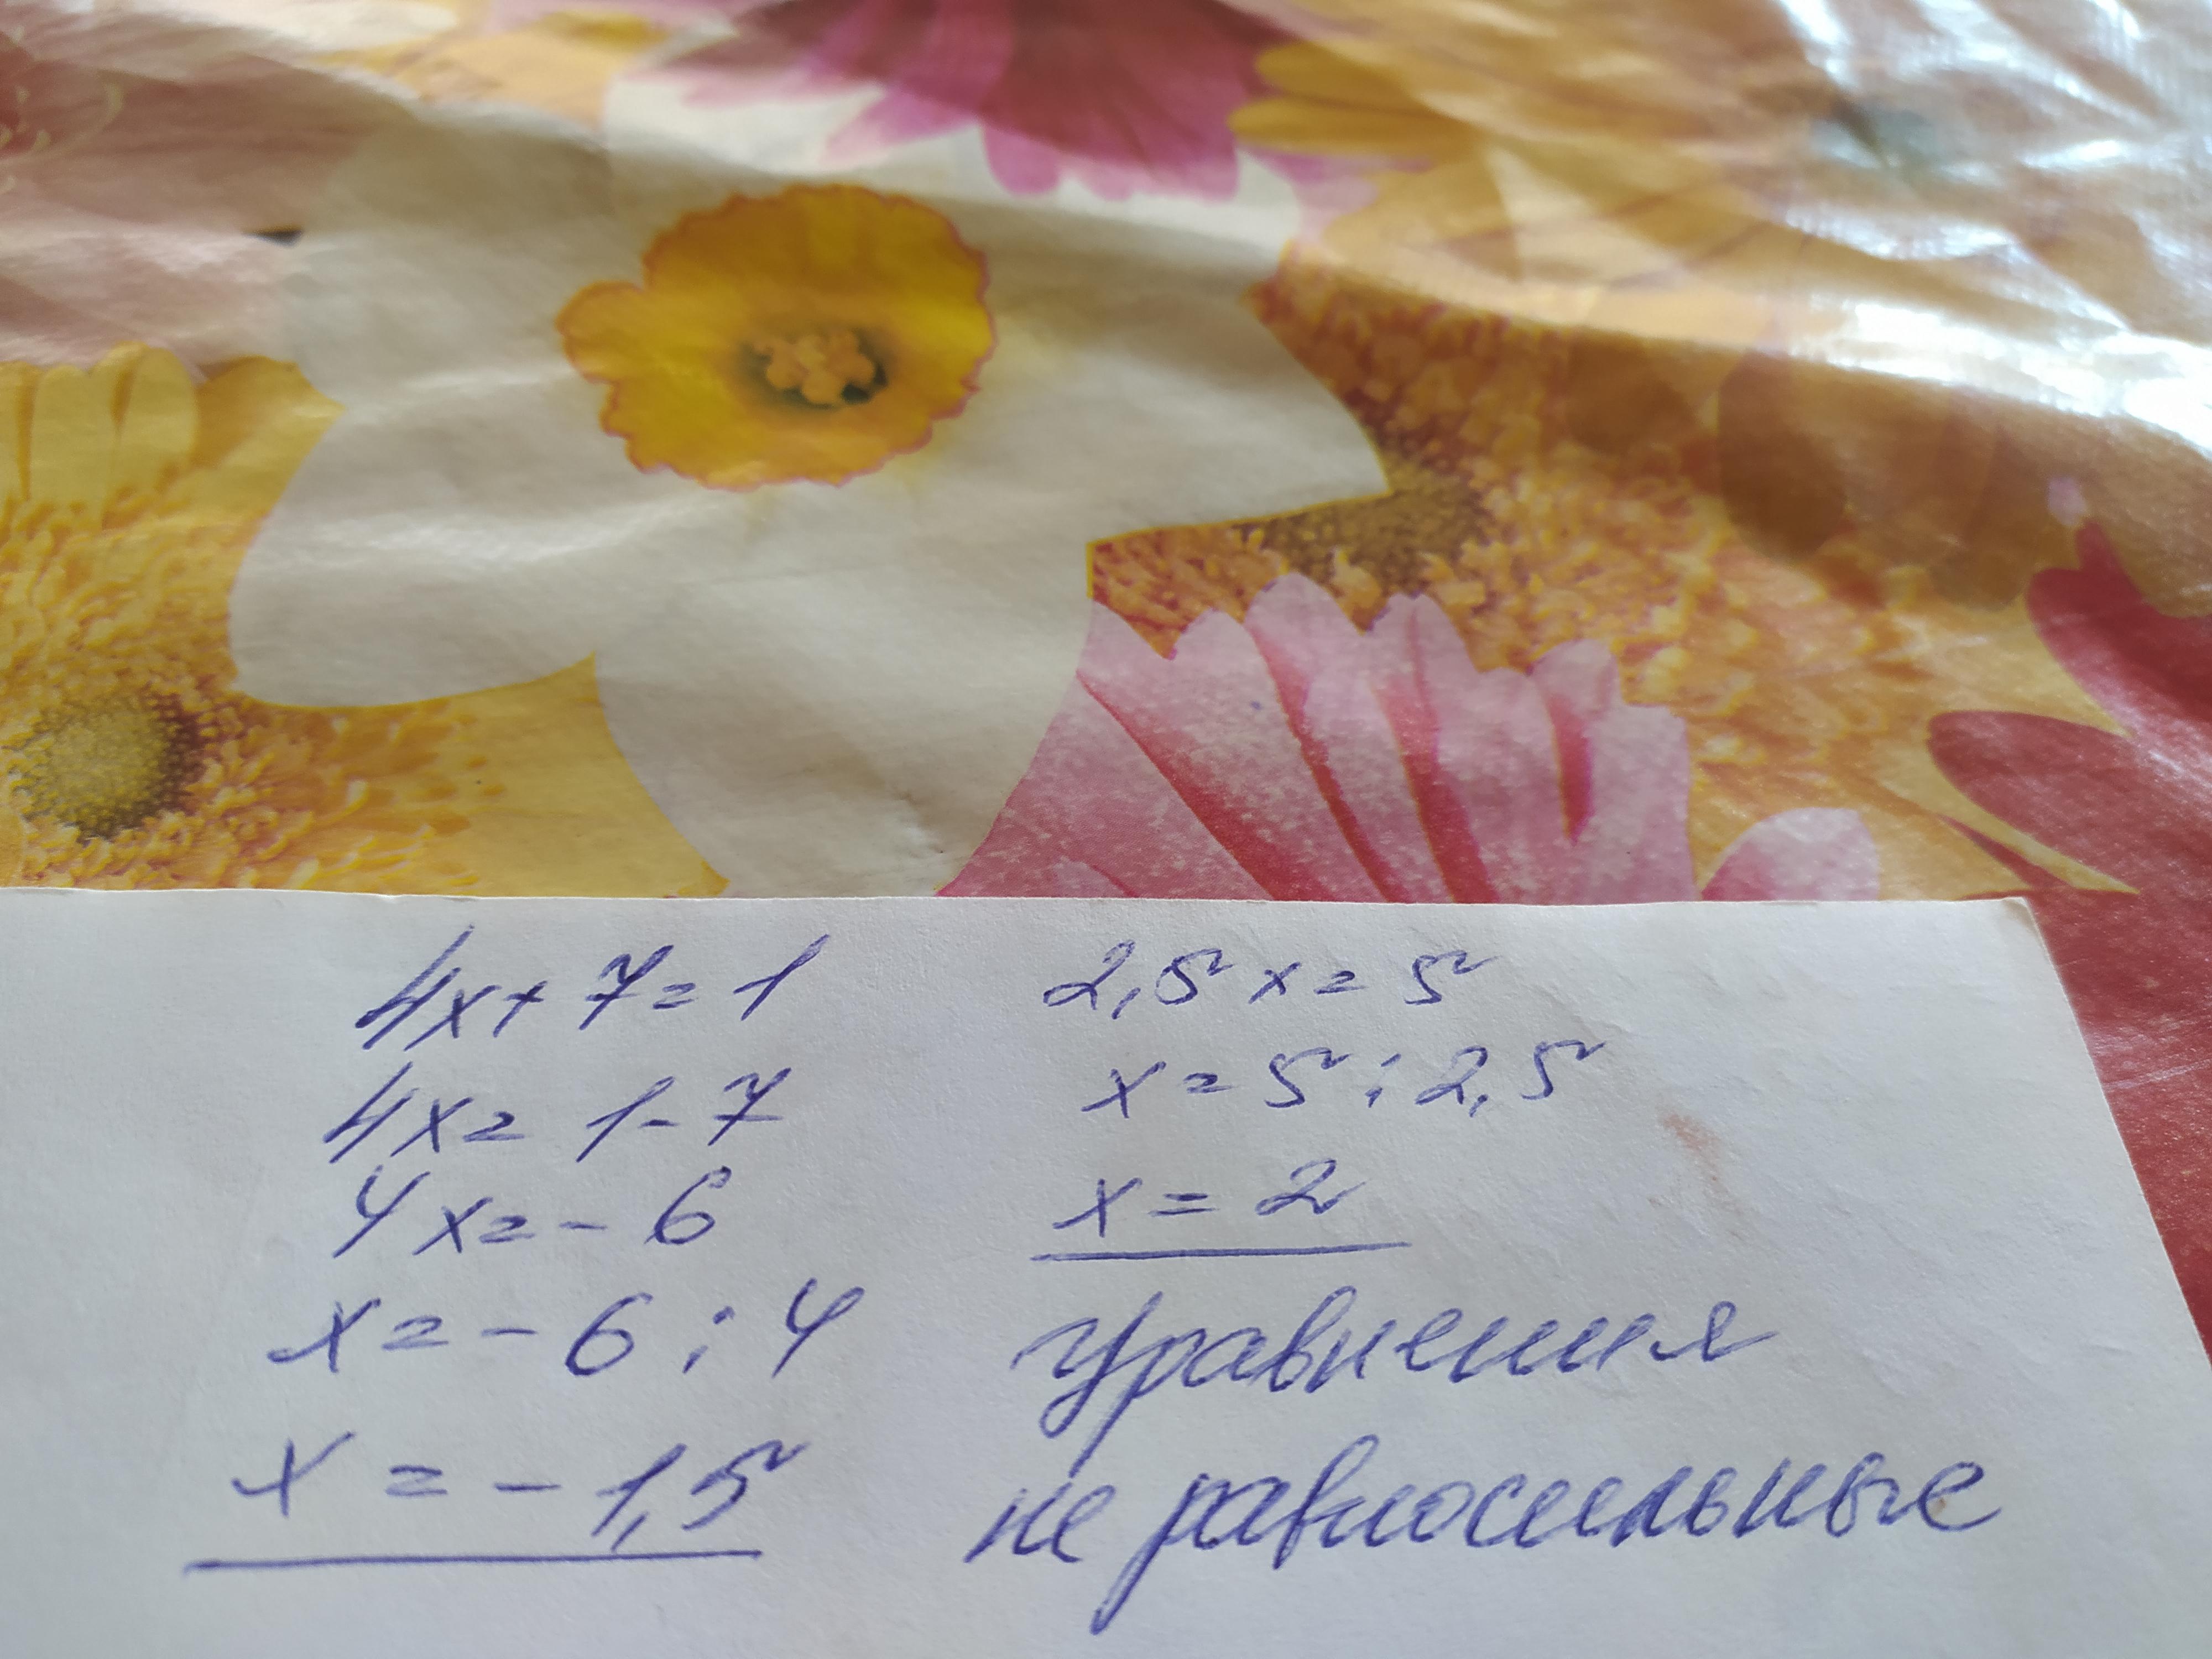 4x+7=1
4x=1-7
4x=-6
x=-6:4
x=-1,5
2,5x=5
x=5:2,5
x=2
уравнения
не равносильные